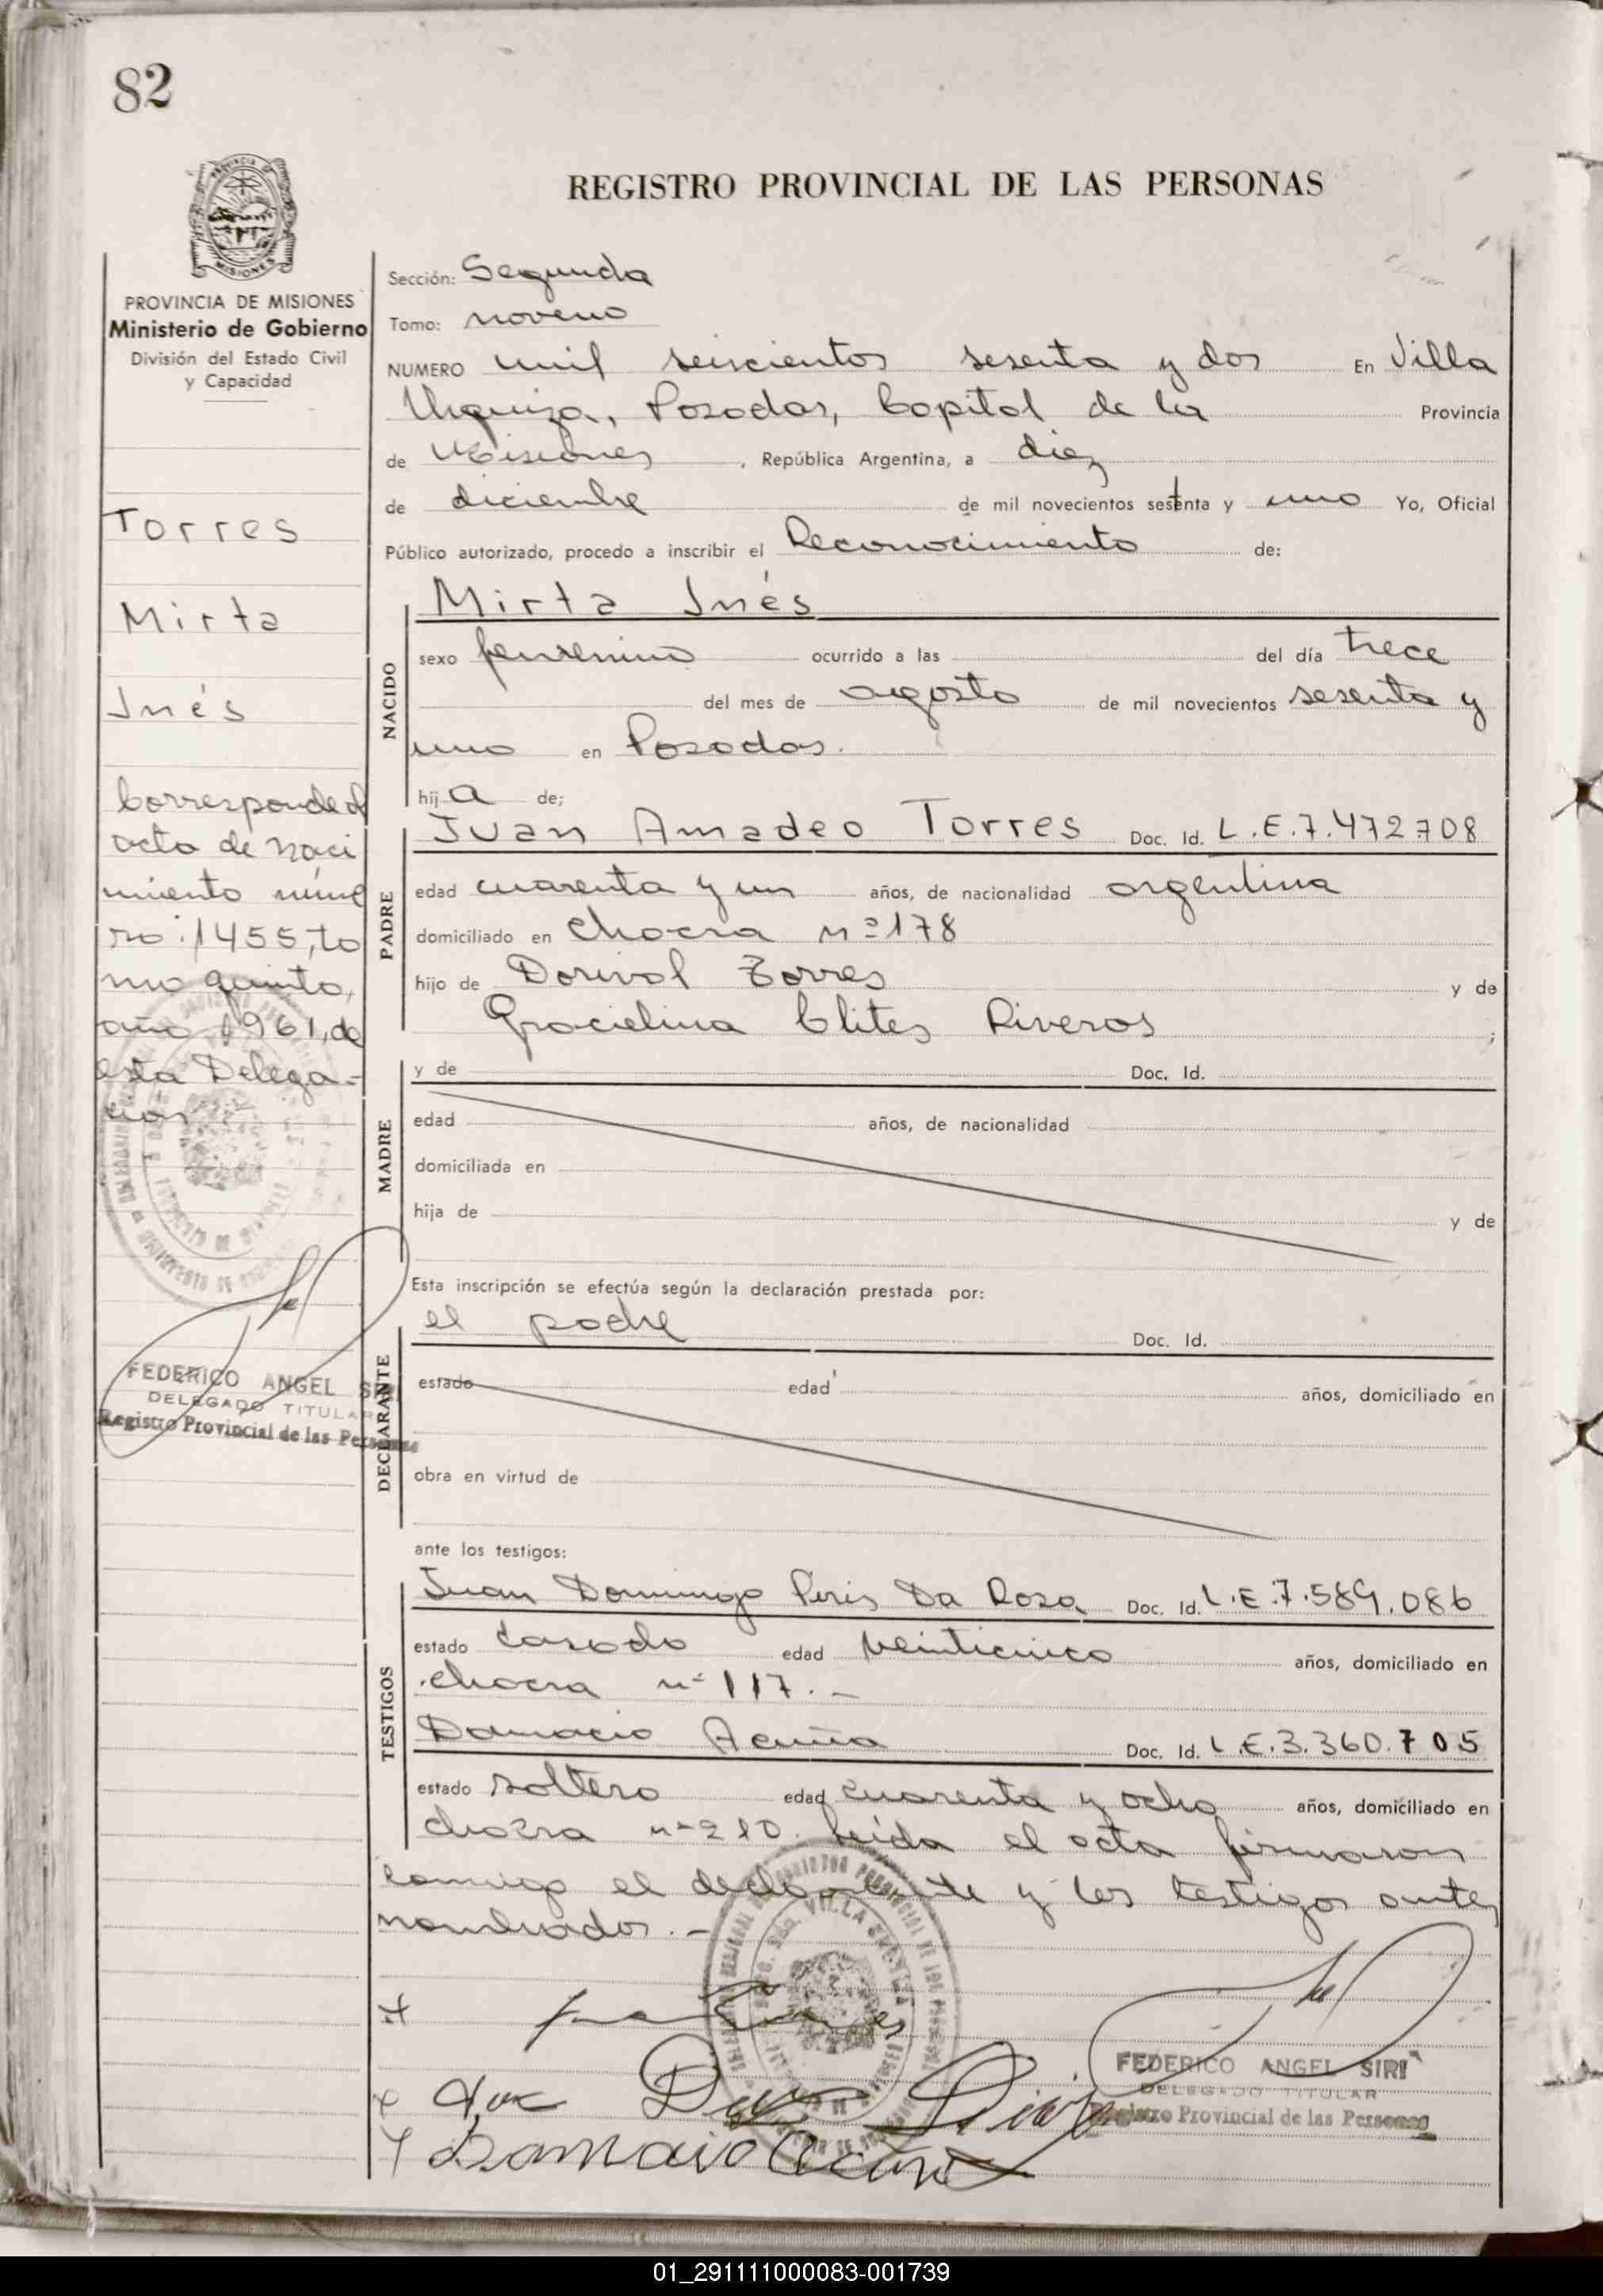 82
REGISTRO PROVINCIAL DE LAS PERSONAS
PROVINCIA DE MISIONES
Ministerio de Gobierno
División del Estado Civil
y Capacidad
Torres
Mirta
Inés
Corresponde al
acta de naci
miento núme
ro: 1455, to
mo quinto,
año 1961, de
esta Delega-
cion
FEDERICO ANGEL SIRI
DELEGADO TITULAR
Registro Provincial de las Personas
Sección: Segunda
Tomo: noveno
NUMERO mil seiscientos sesenta y dos En Villa
Urquiza, Posadas, Capital de la Provincia
de Misiones, República Argentina, a diez
de diciembre de mil novecientos setenta y uno Yo, Oficial
Público autorizado, procedo a inscribir el Reconocimiento de:
NACIDO
Mirta Inés
sexo femenino ocurrido a las del día trece
del mes de agosto de mil novecientos sesenta y
uno en Posadas.
hija de;
PADRE
Juan Amadeo Torres Doc. Id. L.E.7.472708
edad cuarenta y un años, de nacionalidad argentina
domiciliado en chacra nº 178
hijo de Dorival Torres y de
Gracielina Clites Riveros ;
MADRE
y de Doc. Id.
edad años, de nacionalidad
domiciliada en
hija de y de
Esta inscripción se efectúa según la declaración prestada por:
DECLARANTE
el padre Doc. Id.
estado edad años, domiciliado en
obra en virtud de
ante los testigos:
TESTIGOS
Juan Domingo Peris Da Rosa Doc. Id. L.E.7.589.086
estado casado edad veinticinco años, domiciliado en
chacra nº 117.-
Damacio Acuña Doc. Id. L.E.3.360.705
estado soltero edad cuarenta y ocho años, domiciliado en
chacra nº 210. Leída el acta firmaron
conmigo el declarante y los testigos antes
nombrados.-
Damacio Acuña
FEDERICO ANGEL SIRI
DELEGADO TITULAR
Registro Provincial de las Personas
01_291111000083-001739